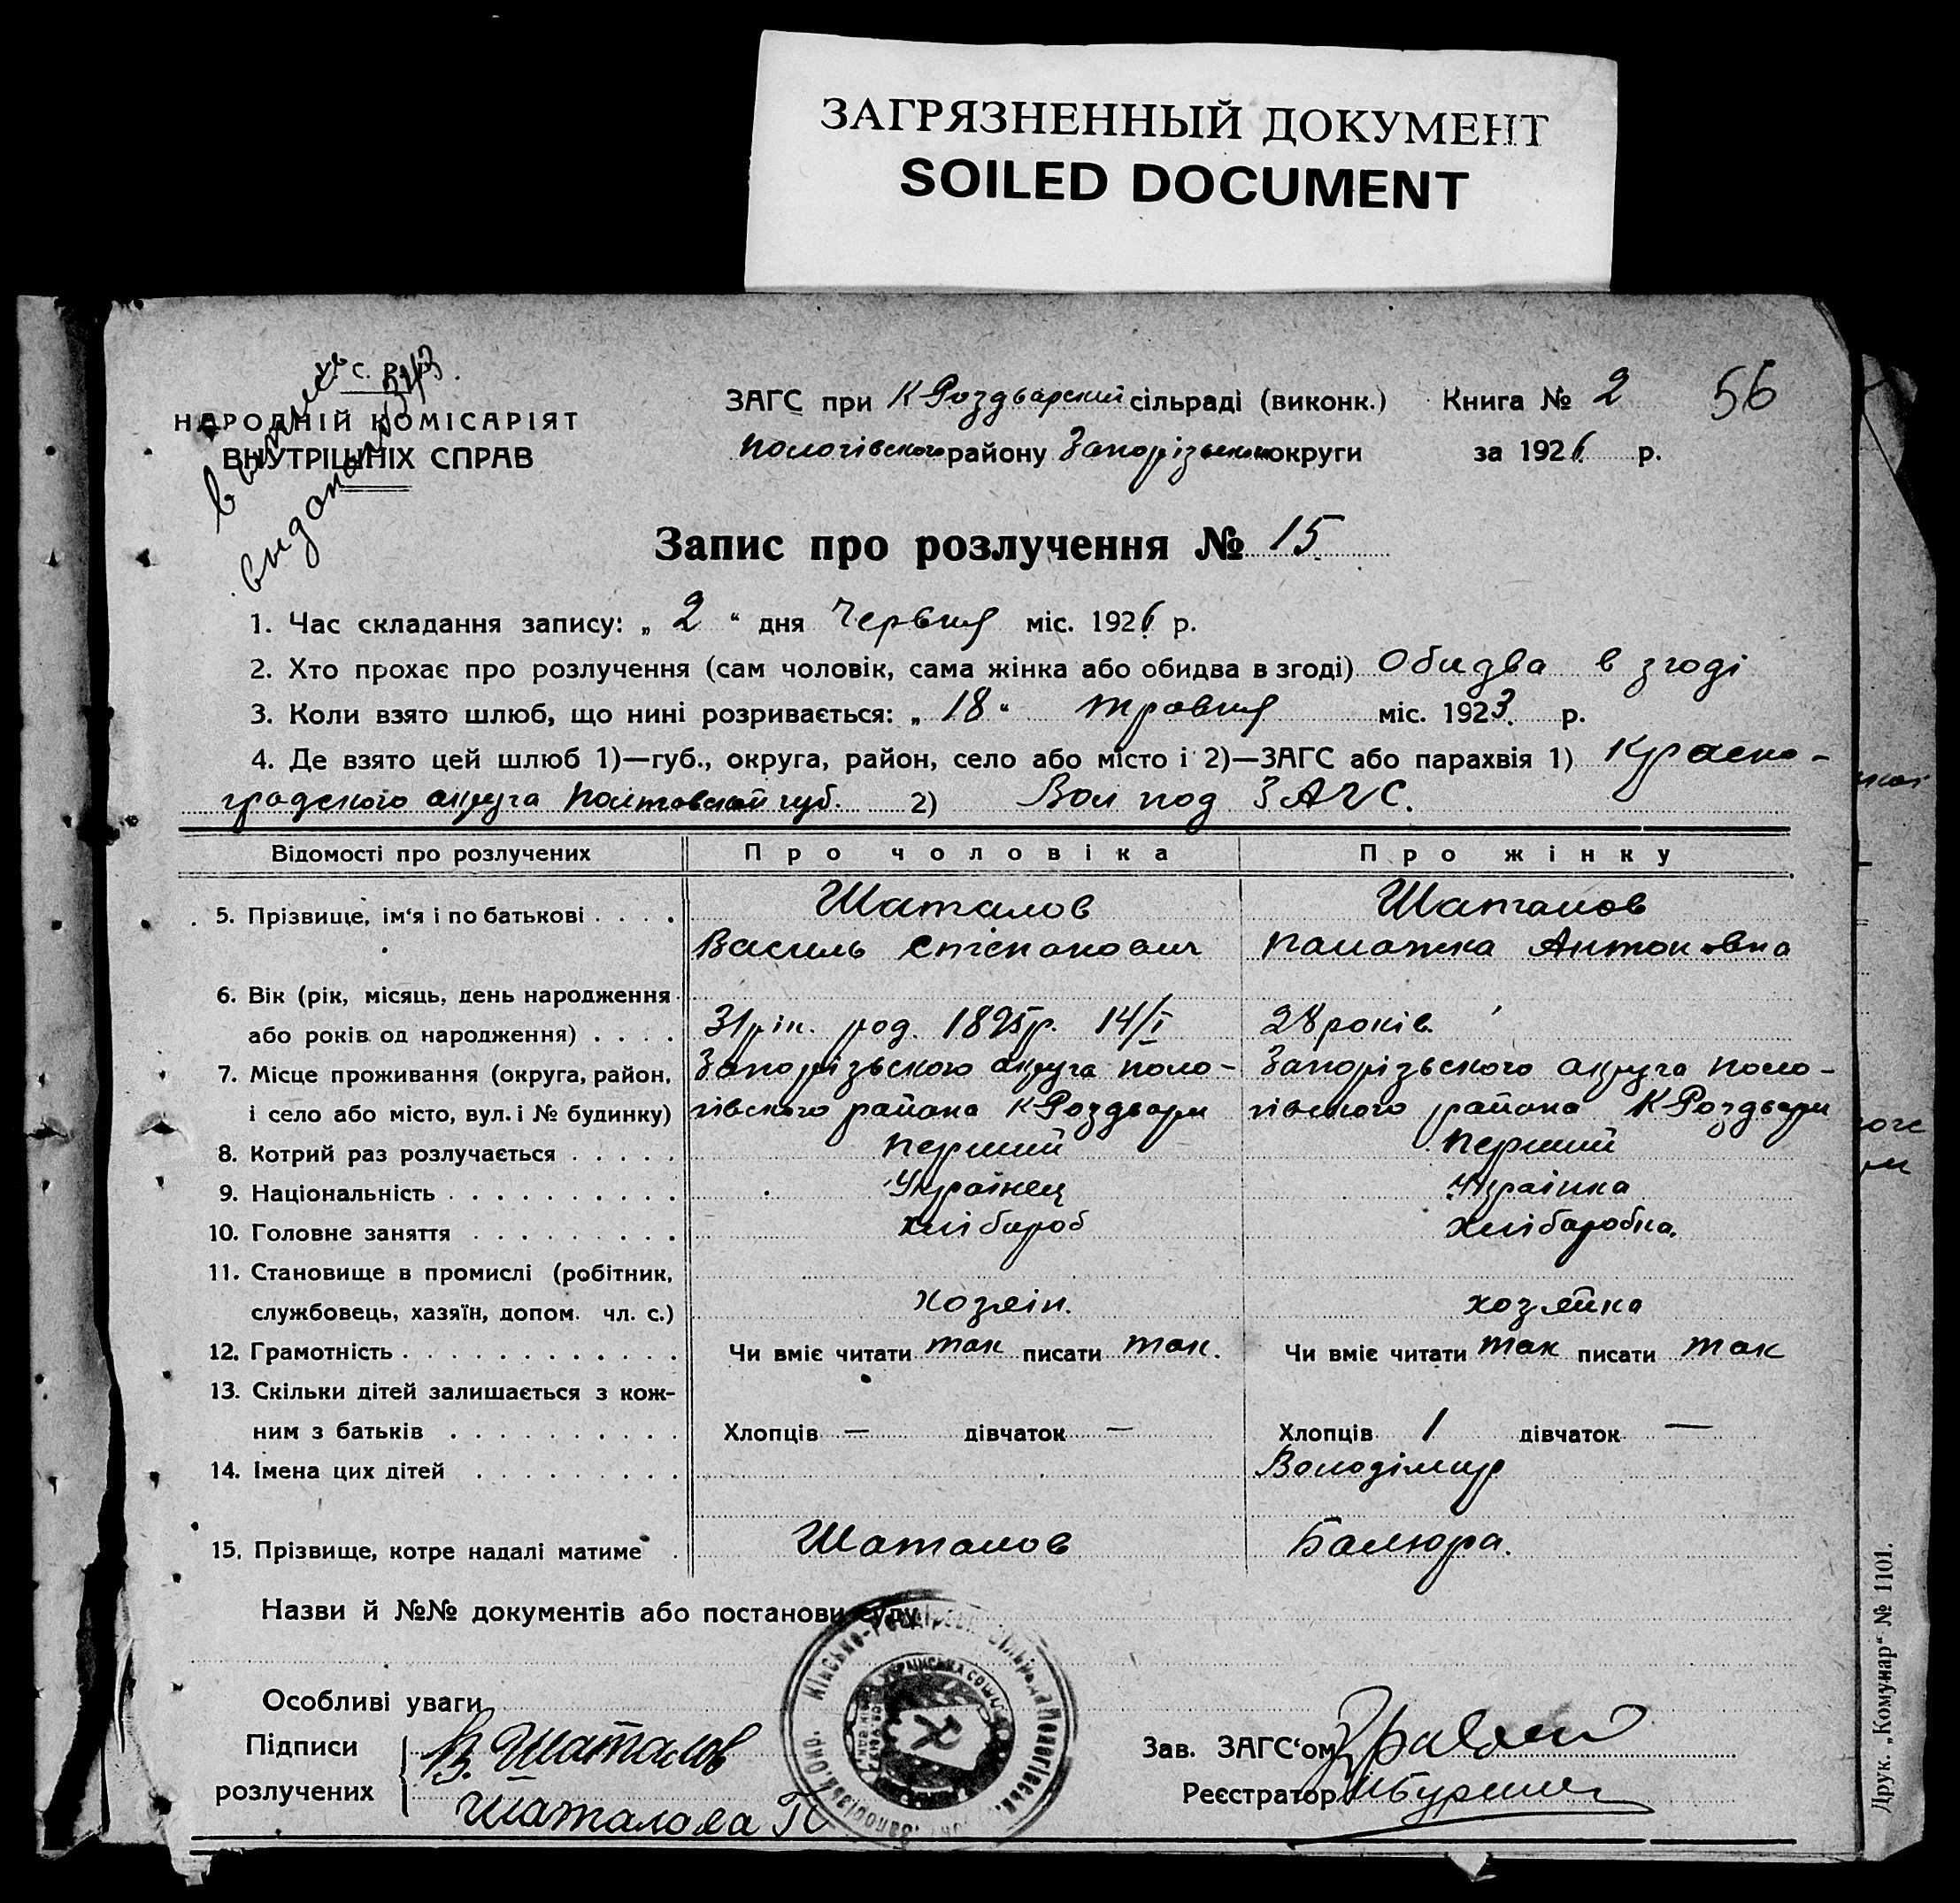 ЗАГРЯЗНЕННЫЙ ДОКУМЕНТ
SOILED DOCUMENT
У. С. Р. Р.
НАРОДНІЙ КОМІСАРІЯТ
ВНУТРІШНІХ СПРАВ
ЗАГС при К Роздварский сільраді (виконк.) Книга № 2 56
Пологівского району Запорізького округи за 1926 р.
Запис про розлучення № 15
1. Час складання запису: „ 2 “ дня Червня міс. 1926 р.
2. Хто прохає про розлучення (сам чоловік, сама жінка або обидва в згоді) Обидва в згоді
3. Коли взято шлюб, що нині розривається: „ 18 “ травня міс. 1923. р.
4. Де взято цей шлюб 1)—губ., округа, район, село або місто і 2)—ЗАГС або парахвія 1) Красно-
градского округа Полтавской губ. 2) ЗАГС.
Відомості про розлучених Про чоловіка Про жінку
5. Прізвище, ім‘я і по батькові . . . . Шаталов Шаталов
Василь Степанович Палажка Антоновна
6. Вік (рік, місяць, день народження
або років од народження) . . . . 31 рік. род. 1895 р. 14/I 28 років.
7. Місце проживання (округа, район, Запорізьского округа Поло- Запорізьского округа Поло-
і село або місто, вул. і № будинку) гівского района К Роздоари гівского района К Роздоари
8. Котрий раз розлучається . . . . . перший перший
9. Національність . . . . . . . . . . Українец Українка
10. Головне заняття . . . . . . . . . хлібороб хліборобка.
11. Становище в промислі (робітник,
службовець, хазяїн, допом. чл. с.) хозяін. хозяйка
12. Грамотність . . . . . . . . . . . . Чи вміє читати так писати так. Чи вміє читати так писати так
13. Скільки дітей залишається з кож-
ним з батьків . . . . . . . . . . Хлопців — дівчаток — Хлопців 1 дівчаток —
14. Імена цих дітей . . . . . . . . . Володімир
15. Прізвище, котре надалі матиме . Шаталов Балюра.
Назви й №№ документів або постанови суду
Особливі уваги
Підписи В. Шаталов Зав. ЗАГС‘ом
розлучених Шаталова П Реєстратор
Друк. „Комунар“ № 1101.